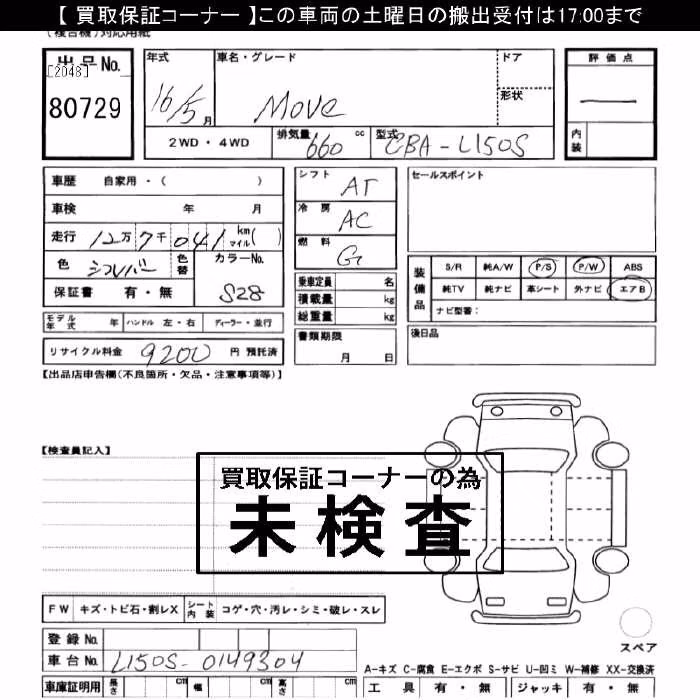 【 買取保証コーナー 】この車両の土曜日の搬出受付は17:00まで
(複合機)対応用紙
出品No. 年式 車名・グレード ドア 評価点
[2048]
80729 16/5月 MOVE 形状 —
内装
2WD・4WD 排気量 660 cc 型式 CBA-L150S
車歴 自家用・( ) シフト AT セールスポイント
車検 年 月 冷房 AC
走行 12万7千041 km マイル( ) 燃料 G
色 シルバー 色替 カラーNo. S28
保証書 有・無
乗車定員 名
積載量 kg
総重量 kg
装備品 S/R 純A/W P/S P/W ABS
純TV 純ナビ 革シート 外ナビ エアB
ナビ型番：
モデル年式 年 ハンドル 左・右 ディーラー・並行
書類期限 月 日
後日品
リサイクル料金 9200 円 預託済
【出品店申告欄(不良箇所・欠品・注意事項等)】
【検査員記入】
買取保証コーナーの為
未検査
FW キズ・トビ石・割レX シート内装 コゲ・穴・汚レ・シミ・破レ・スレ
登録No.
スペア
車台No. L150S-0149304
A-キズ C-腐食 E-エクボ S-サビ U-凹ミ W-補修 XX-交換済
車庫証明用 長さ cm 幅 cm 高さ cm 工具 有・無 ジャッキ 有・無